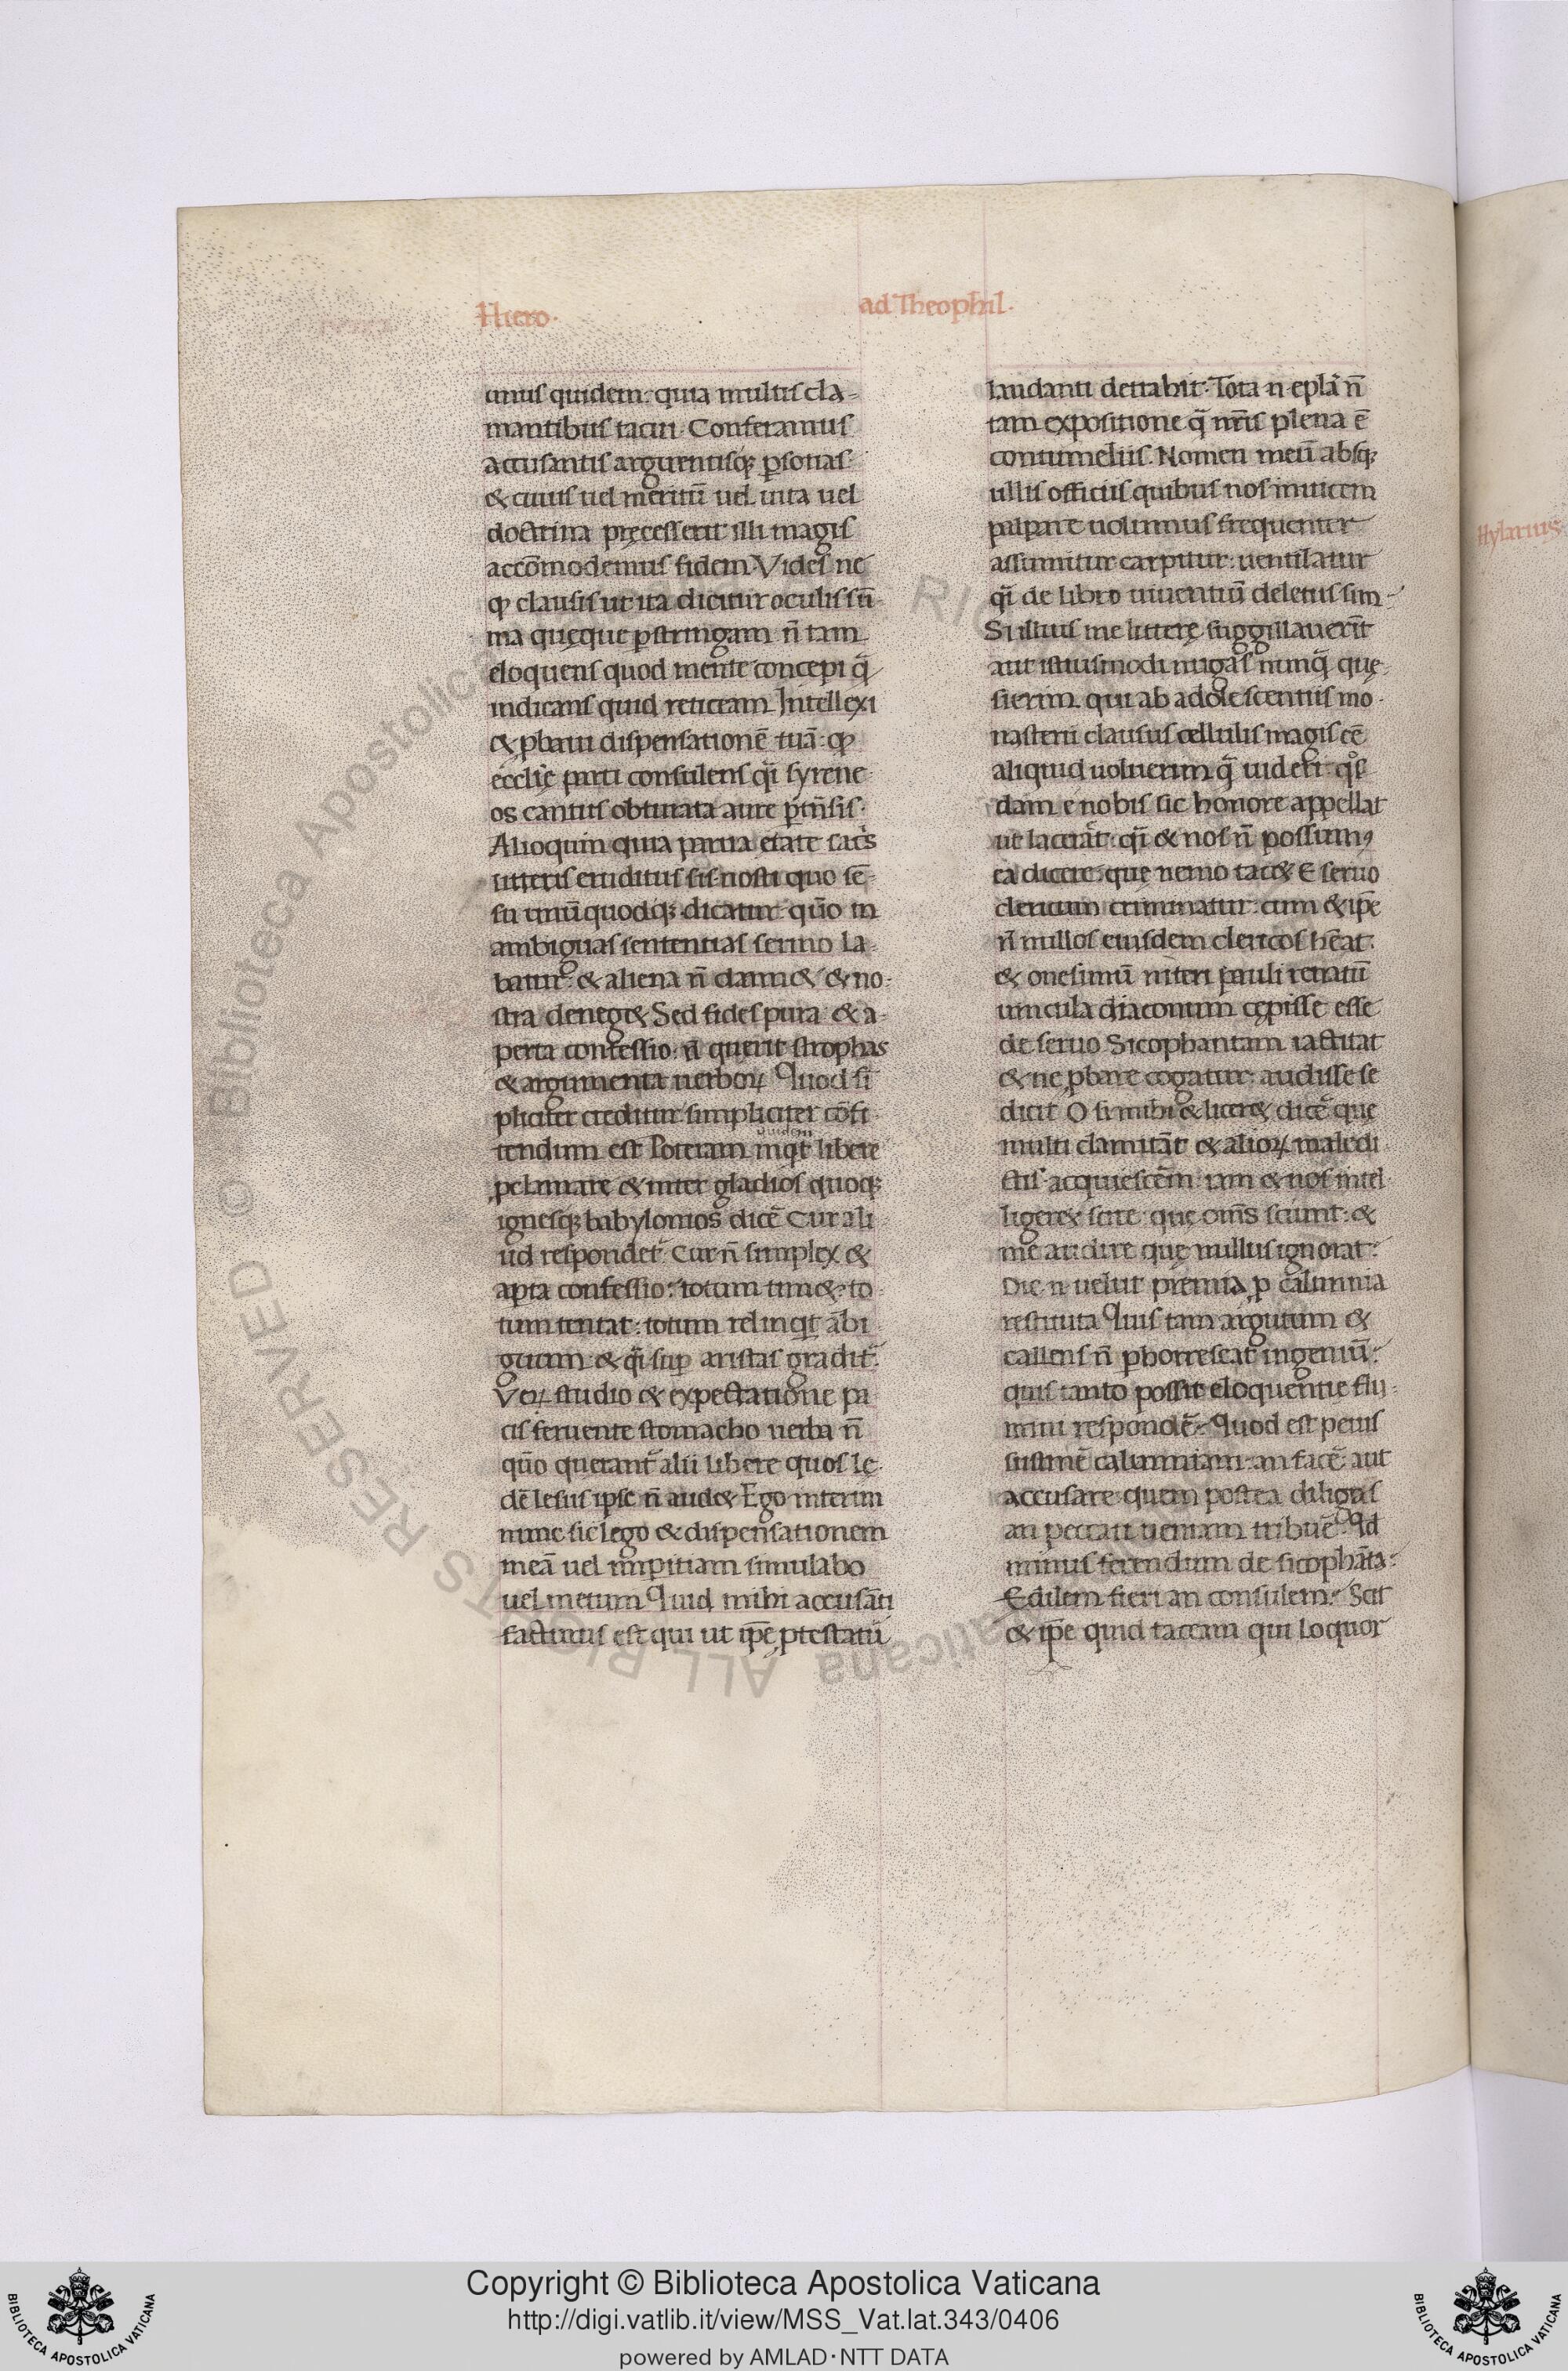 Hiero.
ad Theophil.
unus quidem: quia multis cla-
mantibus tacui. Conferamus
accusantis arguentisq; ꝑsonas.
& cuius uel meritū uel uita uel
doctrina pręcesserit illi magis
accōmodemus fidem. Vides ne
qꝫ clausis ut ita dicitur oculis sū-
ma quęque ꝑstringam n̄ tam
eloquens quod mente concepi q̄
indicans quid reticeam. Intellexi
& ꝓbaui dispensationē tuā: qꝫ
ęcclię paci consulens q̄i syrene-
os cantus obturata aure ꝑtn̄sis.
Alioquin quia parua etate sac̄s
litteris eruditus sis nosti quo sē-
su unūquodq; dicatur. quō in
ambiguas sententias sermo la-
batur: & aliena n̄ damn& & no-
stra deneg&. Sed fides pura & a-
perta confessio: n̄ querit strophas
& argumenta uerboꝝ. Quod sī
pliciter creditur simpliciter cōfi-
tendum est. Poteram quidem inqt libere
ꝓclamare & inter gladios quoq;
ignesq; babylonios dicē. Cur ali-
ud respondet: Cur n̄ simplex &
aꝑta confessio: totum tim&: to-
tum temtat: totum relinqt ābi-
guum: & q̄i suꝑ aristas gradit.
Veꝝ studio & expectatione pa
cis feruente stomacho uerba n̄
quō querant alii libere quos le-
dē lesus ipse n̄ aud&. Ego interim
nunc sic lego & dispensationem
meā uel imꝑitiam simulabo
uel metum. Quid mihi accusāti
facturus est qui ut ip̄e ꝓtestatū
laudanti detrahit. Tota n eplā n̄
tam expositione q̄ nr̄is plena ē
contumeliis. Nomen meū absq;
ullis officiis quibus nos inuicem
palpare uolumus frequenter
assumitur carpitur: uentilatur
q̄i de libro uiuentiū deletus sim-
Si illius me litterę suggillauerīt
aut istiusmodi nugas nunq̄ quę-
sierim. qui ab adolescentiis mo-
nasterii clausus cellulis magis cē
aliquid uoluerim q̄ uideri. qos
dam e nobis sic honore appellat
ut lacerāt: q̄i & nos n̄ possumꝰ
ea dicere. quę nemo tac&. E seruo
clericum criminatur. cum & ip̄e
n̄ nullos eiusdem clericos hēat:
& onesimū inter pauli renatū
uincula diaconum cępisse esse
de seruo. Sicophantam iactitat
& ne ꝓbare cogatur: audisse se
dicit. O si mihi & licer& dicē que
multi clamitāt & alioꝝ maledi
ctis acquiescēm: iam & nos intel-
liger& scire que om̄s sciunt: &
me audire quę nullus ignorat:
Die n uelut pręmia ꝓ calumnia
restituta. Quis tam argutum &
callens n̄ ꝑhorrescat ingeniū:
quis tanto possit eloquentie flu-
mini respondē. Quod est peius
sustinē calumniam: an facē: aut
accusare quem postea diligas
an peccati ueniam tribuē. Qd
minus ferendum de sicophāta:
Edilem fieri an consulem. Scit
& ip̄e quid taceam qui loquor
Hylarius
Copyright © Biblioteca Apostolica Vaticana
http://digi.vatlib.it/view/MSS_Vat.lat.343/0406
powered by AMLAD·NTT DATA